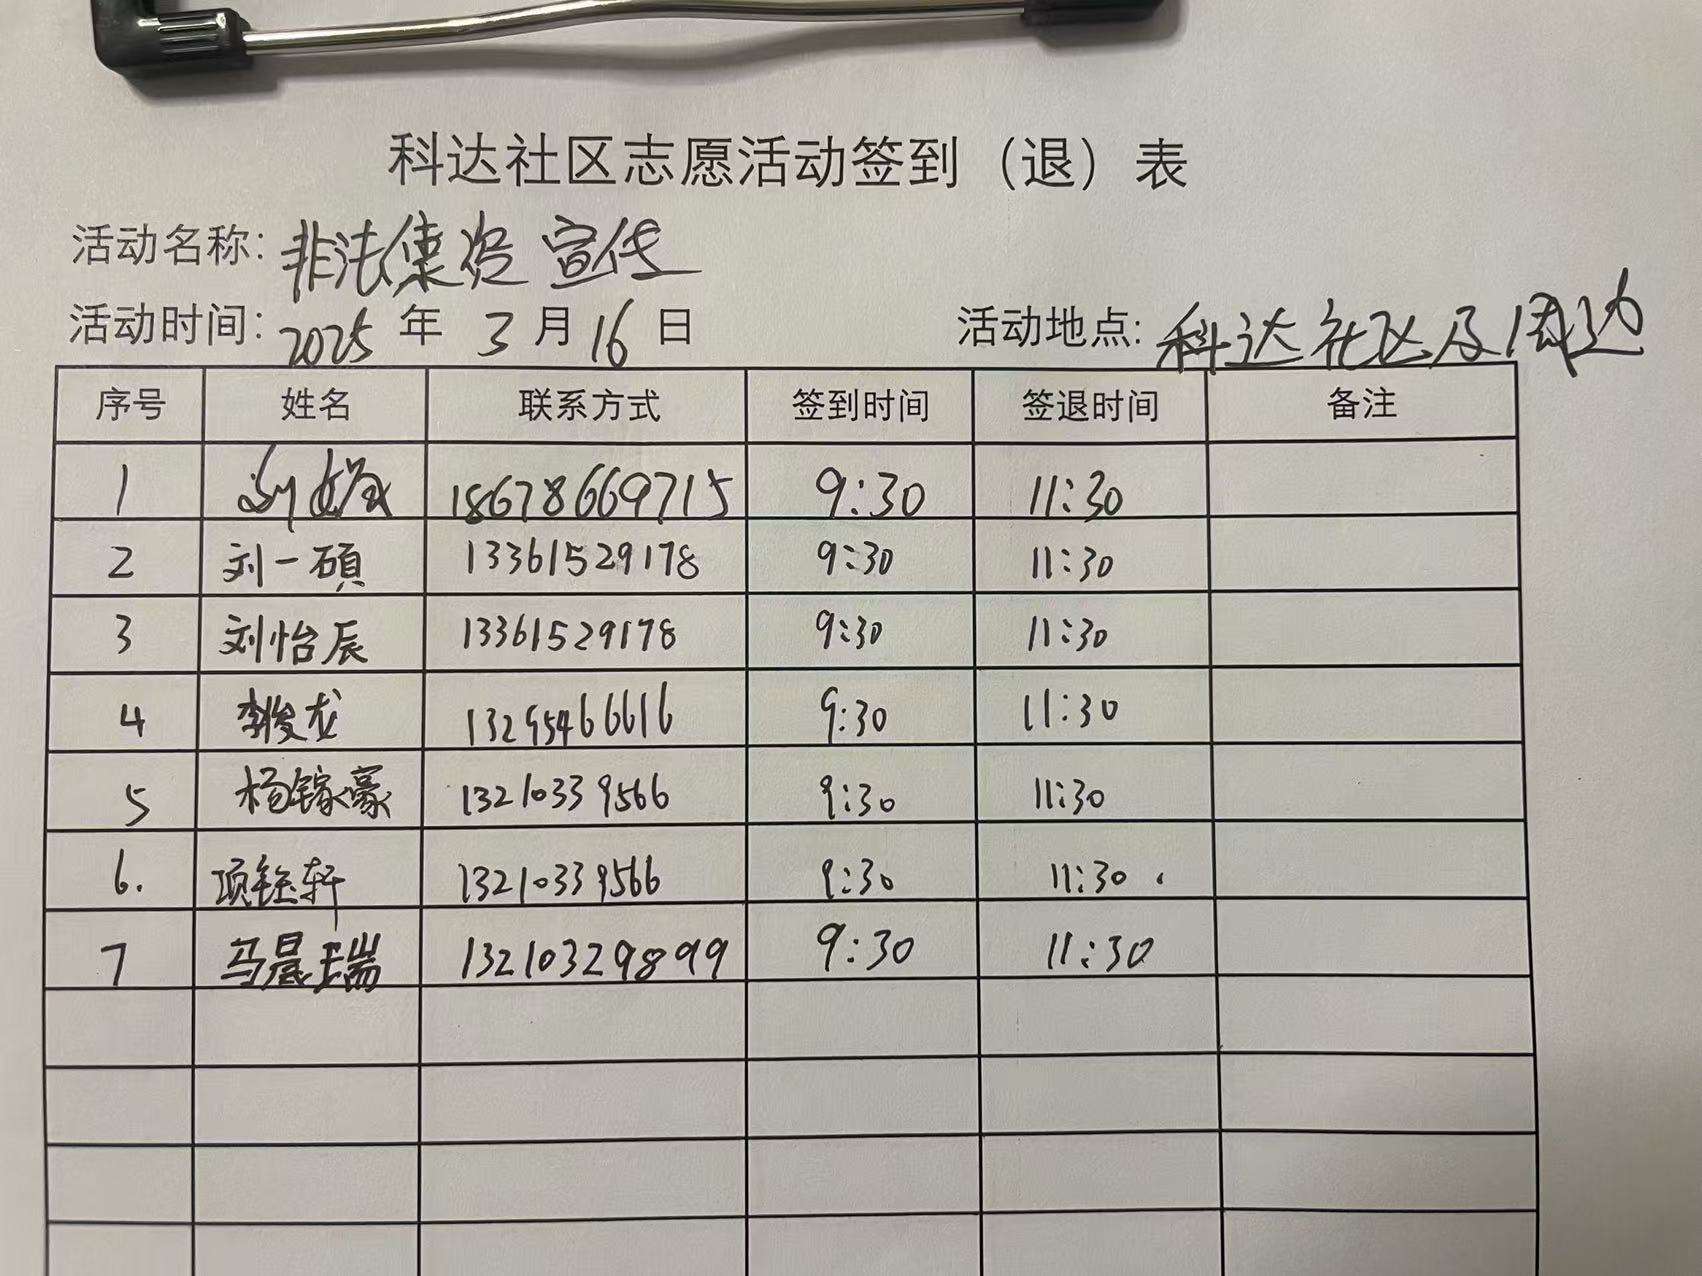 科达社区志愿活动签到（退）表
活动名称：非法集资 宣传
活动时间：2025 年 3 月 16 日 活动地点：科达社区及周边
序号 姓名 联系方式 签到时间 签退时间 备注
1 刘 18678669715 9:30 11:30
2 刘一硕 13361529178 9:30 11:30
3 刘怡辰 13361529178 9:30 11:30
4 李俊龙 13295466616 9:30 11:30
5 杨镓豪 13210339566 9:30 11:30
6. 项钰轩 13210339566 9:30 11:30
7 马晟瑞 13210329899 9:30 11:30